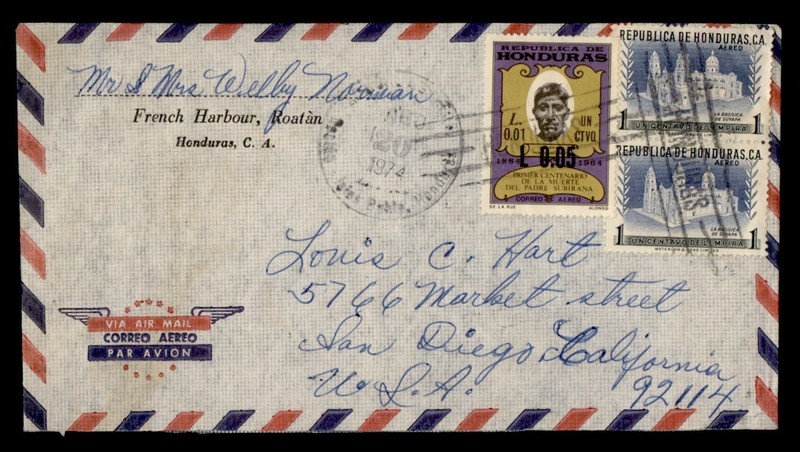 Mr & Mrs Welby Norman
French Harbour, Roatàn
Honduras, C. A.
1974
REPUBLICA DE
HONDURAS
L.
0.01
UN
CTVO.
L 0.05
1864 1964
PRIMER CENTENARIO
DE LA MUERTE
DEL PADRE SUBIRANA
CORREO AEREO
DE LA RUE ALONSO
REPUBLICA DE HONDURAS, C.A.
AEREO
LA BASILICA
DE SUYAPA
1 UN CENTAVO DE LEMPIRA 1
REPUBLICA DE HONDURAS, C.A.
AEREO
LA BASILICA
DE SUYAPA
1 UN CENTAVO DE LEMPIRA 1
Louis C. Hart
5766 Market street
San Diego, California
U.S.A. 92114
VIA AIR MAIL
CORREO AEREO
PAR AVION